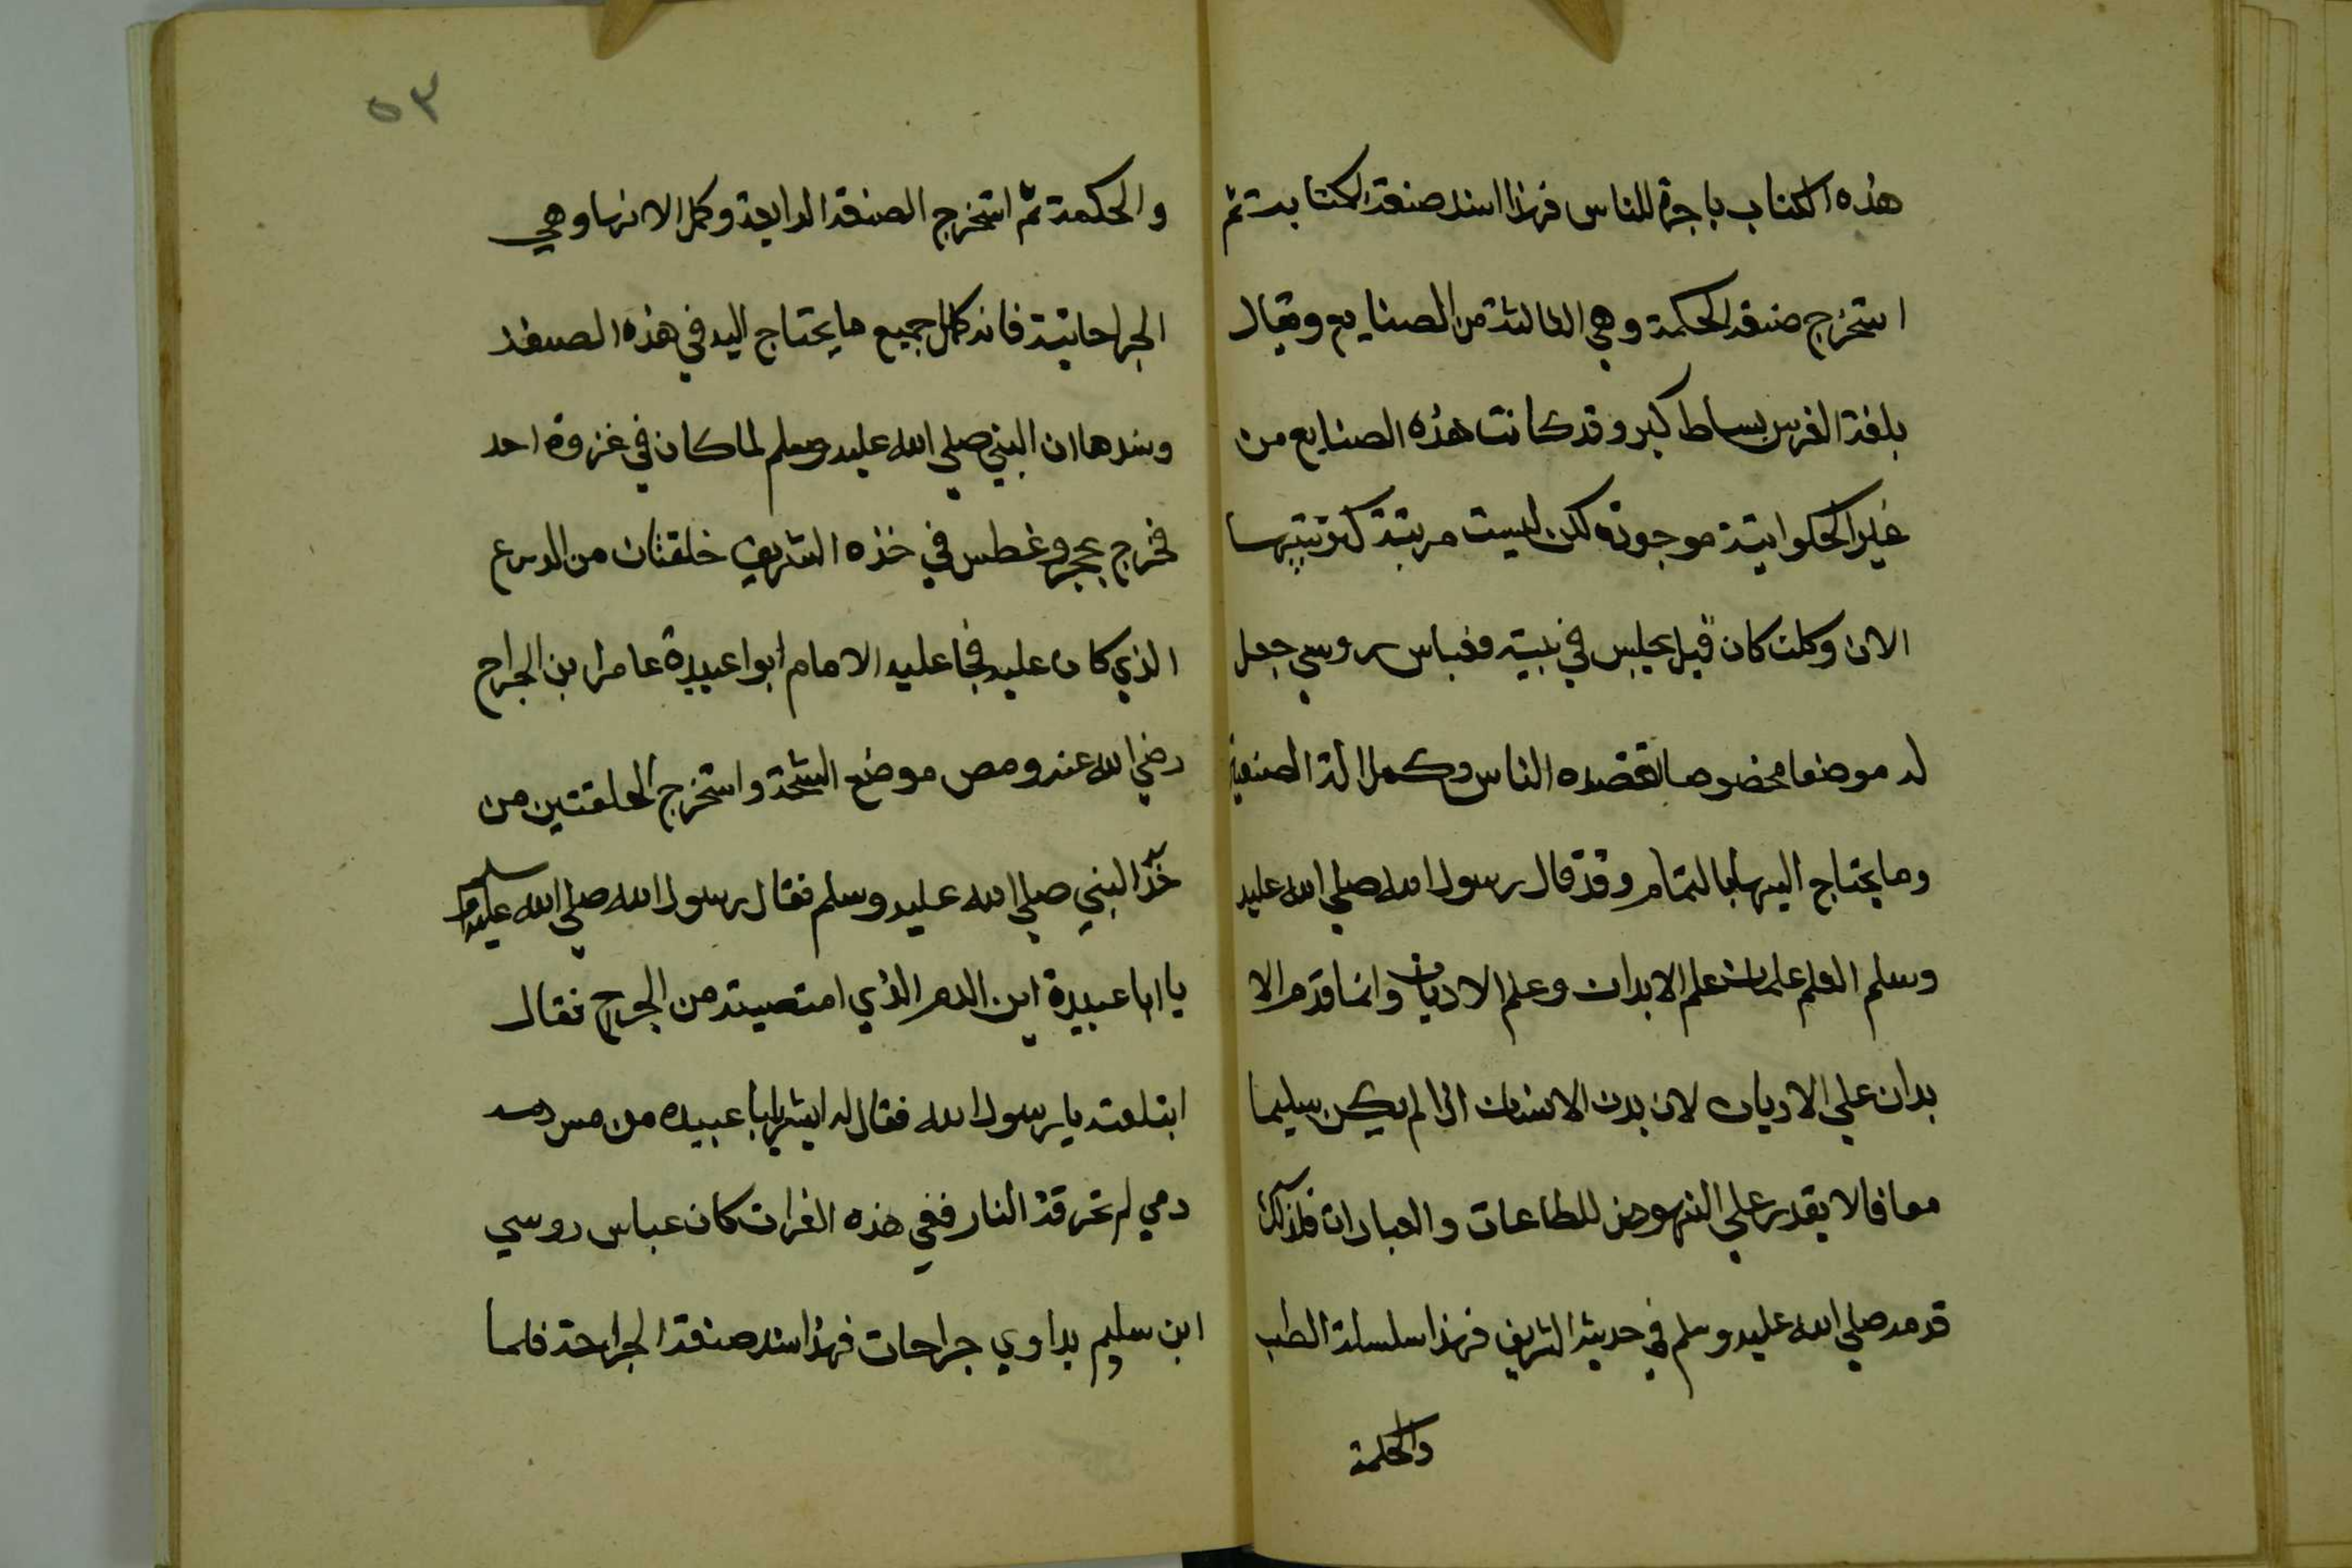 هذه الكتاب باجرة للناس فهذا سند صنعة الكتابت ثم
استخرج صنعة الحكمة وهي الثالثة من الصنايع ويقال
بلغة الفرس بساط كبر وقد كانت هذه الصنايع من
غير الحكوايتية موجودة لكن ليست مرتبة كترتيبها
الان وكلت كان قبل يجلس في بيته وعباس روسي جعل
له موضعا مخصوصا تقصده الناس وكمل الة الصنعة
وما يحتاج اليها بالتمام وقد قال رسول الله صلي الله عليه
وسلم العلم علمان علم الابدان وعلم الاديان وانما قدم الا
بدان علي الاديان لان بدن الانسان اذا لم يكن سليما
معافا لا يقدر علي النهوض للطاعات والعبادات فلذلك
قدمه صلي الله عليه وسلم في حديثه الشريف فهذا سلسلة الطب
والحكمة
٥٣
والحكمة ثم استخرج الصنعة الرابعة وكمل الاتها وهي
الجراحاتية فانه كمل جميع ما يحتاج اليه في هذه الصنعة
وسندها ان النبي صلي الله عليه وسلم لما كان في غزوة احد
فخرج بحجر وغطس في خذه الشريف خلقتان من الدرع
الذي كان عليه فجا عليه الامام ابوا عبيدة عامر ابن الجراح
رضي الله عنه ومص موضع الشجة واستخرج الحلقتين من
خذ النبي صلي الله عليه وسلم فقال رسول الله صلي الله عليه وسلم
يا ابا عبيدة اين الدم الذي امتصيته من الجرح فقال
ابتلعته يا رسول الله فقال له ابشر يابا عبيده من مس دمه
دمي لم تحرقه النار ففي هذه الغزات كان عباس روسي
ابن سليم يداوي جراحات فهذا سند صنعة الجراحة فلما